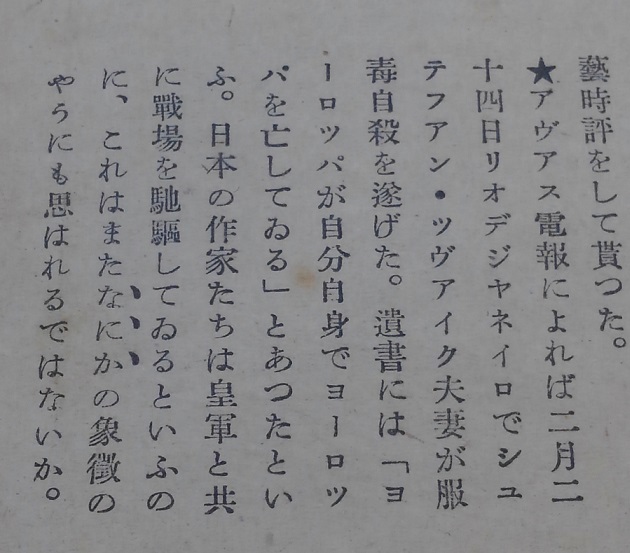 藝時評をして貰つた。
★アヴアス電報によれば二月二
十四日リオデジヤネイロでシユ
テフアン・ツヴアイク夫妻が服
毒自殺を遂げた。遺書には「ヨ
ーロツパが自分自身でヨーロツ
パを亡してゐる」とあつたとい
ふ。日本の作家たちは皇軍と共
に戰場を馳驅してゐるといふの
に、これはまたなにかの象徵の
やうにも思はれるではないか。